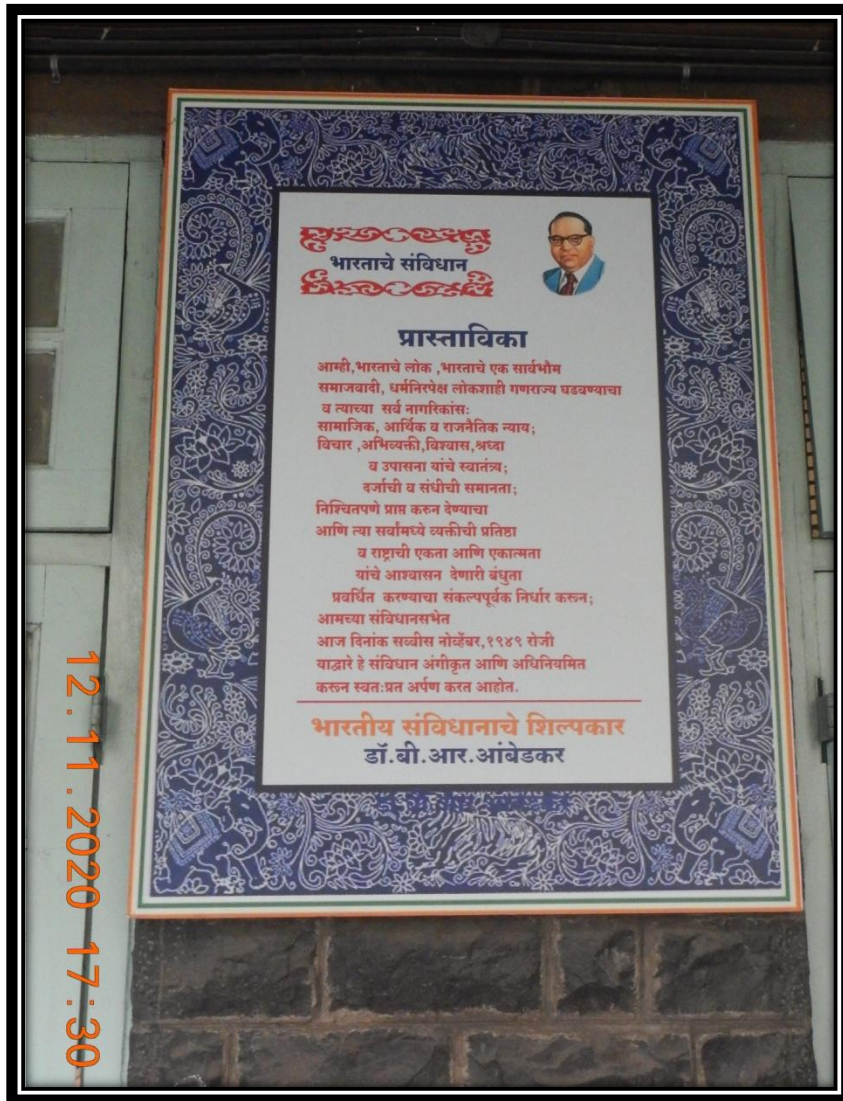 भारताचे संविधान
प्रास्ताविका
आम्ही,भारताचे लोक ,भारताचे एक सार्वभौम
समाजवादी, धर्मनिरपेक्ष लोकशाही गणराज्य घडवण्याचा
व त्याच्या सर्व नागरिकांस:
सामाजिक, आर्थिक व राजनैतिक न्याय;
विचार ,अभिव्यक्ती,विश्वास,श्रध्दा
व उपासना यांचे स्वातंत्र्य;
दर्जाची व संधीची समानता;
निश्चितपणे प्राप्त करुन देण्याचा
आणि त्या सर्वांमध्ये व्यक्तीची प्रतिष्ठा
व राष्ट्राची एकता आणि एकात्मता
यांचे आश्वासन देणारी बंधुता
प्रवर्धित करण्याचा संकल्पपूर्वक निर्धार करून;
आमच्या संविधानसभेत
आज दिनांक सव्वीस नोव्हेंबर,१९४९ रोजी
याद्वारे हे संविधान अंगीकृत आणि अधिनियमित
करून स्वत:प्रत अर्पण करत आहोत.
भारतीय संविधानाचे शिल्पकार
डॉ.बी.आर.आंबेडकर
12.11.2020 17:30